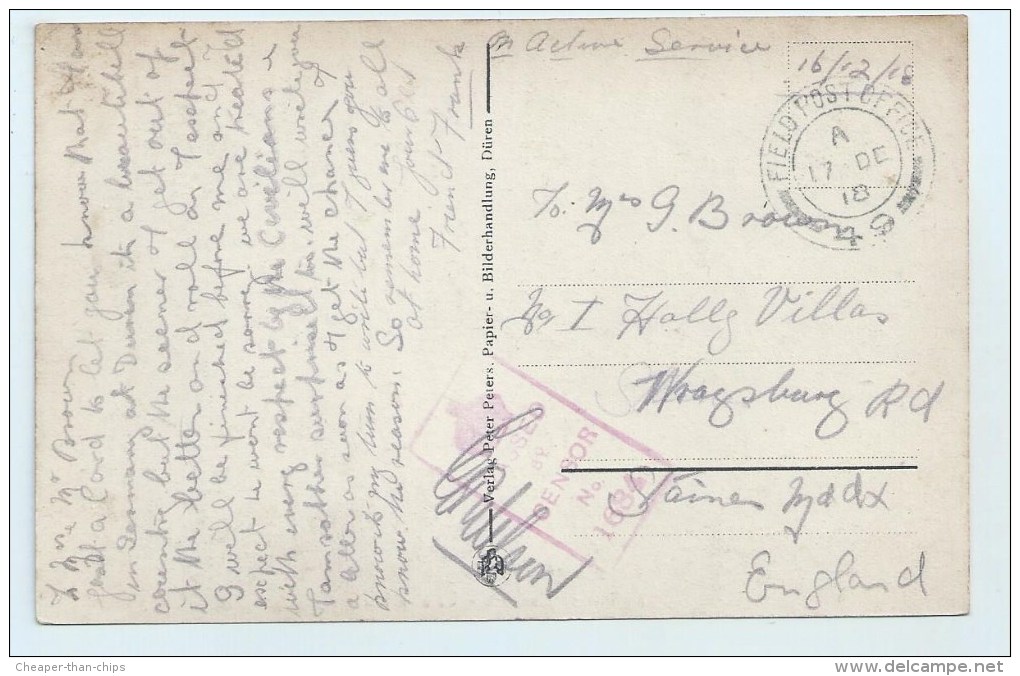 D Mr & Mrs Brown
just a Card to let you know that I am
in Germany at Duren its a beautifull
countre but the sooner I get out of
it the better and roll on I expect
I will be finished before me and I
expect te wont be sorry. we are treated
with every respect by the Civilians &
I am rather surprised to. well will give
a letter as soon as I get the chance &
knows my turn to write but I guess you
know the reason. So remember me to all
at home. Your Old
Friend Frank
Verlag Peter Peters. Papier- u. Bilderhandlung, Düren
On Active Service
16/12/18
FIELD POST OFFICE
A
17 DE
18
To. Mrs G. Brown
No I Holly Villas
Wraysbury Rd
Staines Middx
England
PASSED
BY
CENSOR
No.
Cheaper-than-chips
www.delcampe.net